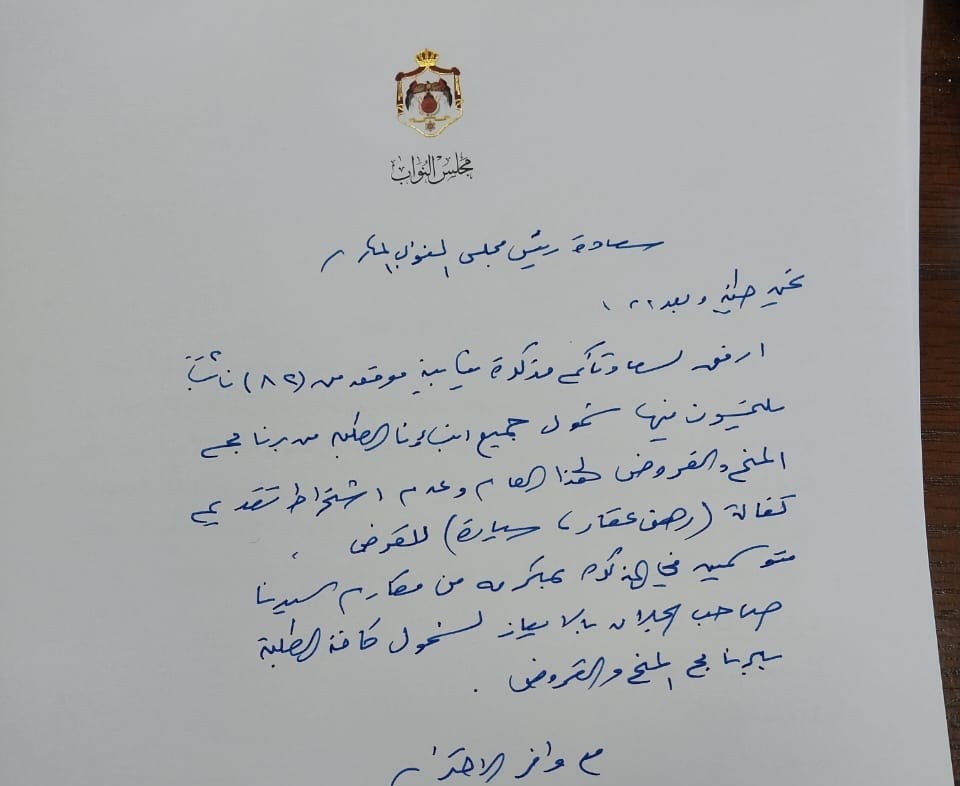 مجلس النواب
سعادة رئيس مجلس النواب المكرم
تحية طيبة وبعد ،،،
ارفق لسعادتكم مذكرة نيابية موقعه من (٨٢) نائباً
يلتمسون فيها شمول جميع ابناءنا الطلبه من برنامج
المنح والقروض لهذا العام وعدم اشتراط تقديم
كفالة (رهن عقار، سيارة) للقرض ،
متوسمين في المذكره بمكرمه من مكارم لسيدنا
صاحب الجلالة بالايعاز لشمول كافة الطلبة
ببرنامج المنح والقروض .
مع وافر الاحترام